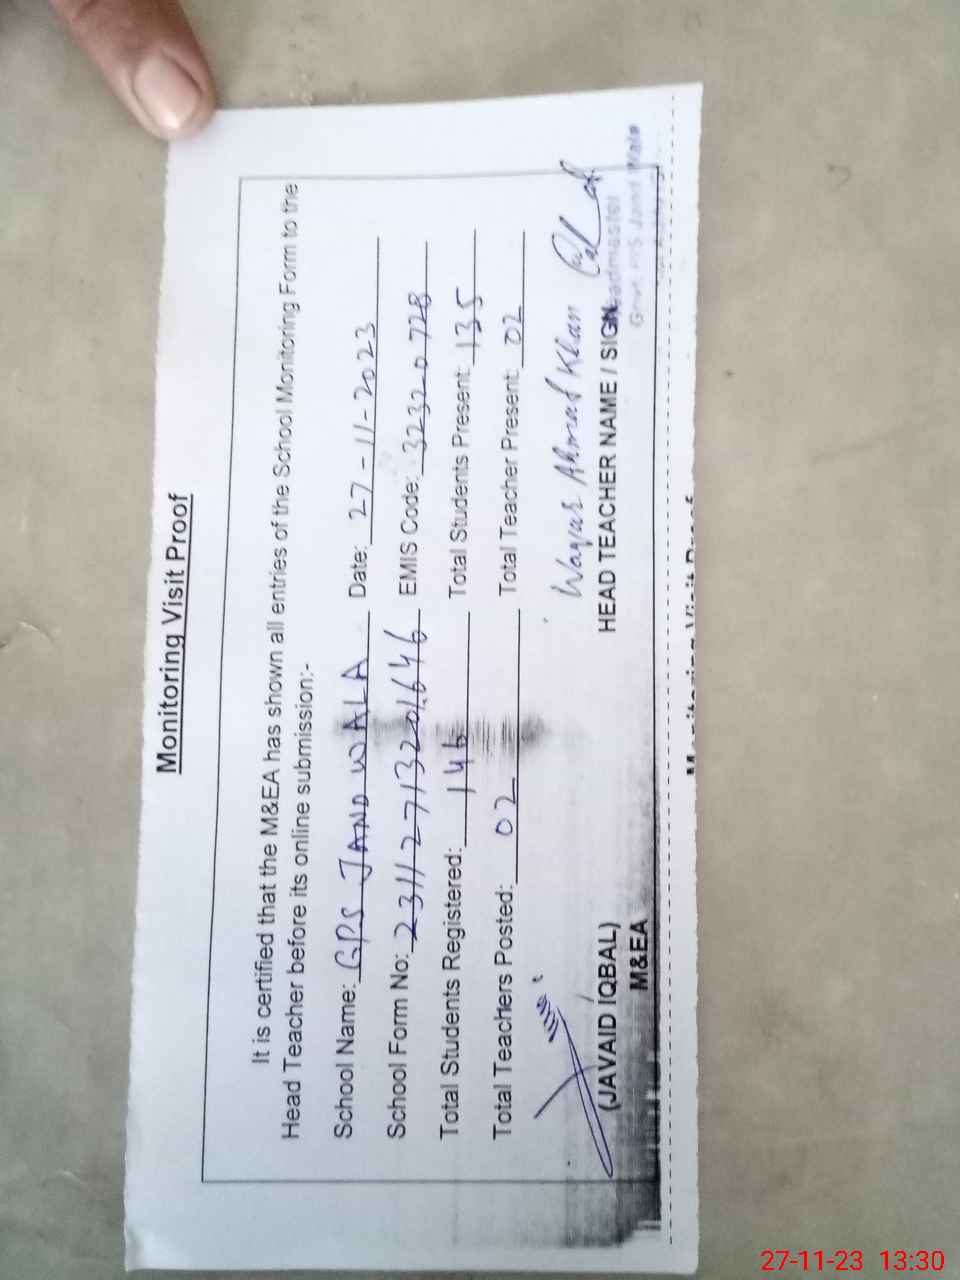 Monitoring Visit Proof
It is certified that the M&EA has shown all entries of the School Monitoring Form to the
Head Teacher before its online submission:-
School Name: GPS JAND WALA Date: 27-11-2023
School Form No: 23112713201646 EMIS Code: 32320728
Total Students Registered: 146 Total Students Present: 135
Total Teachers Posted: 02 Total Teacher Present: 02
Waqar Ahmad Khan
(JAVAID IQBAL) HEAD TEACHER NAME / SIGN
M&EA
Headmaster
Govt. P/S Jand Wala
Monitoring Visit Proof
27-11-23 13:30